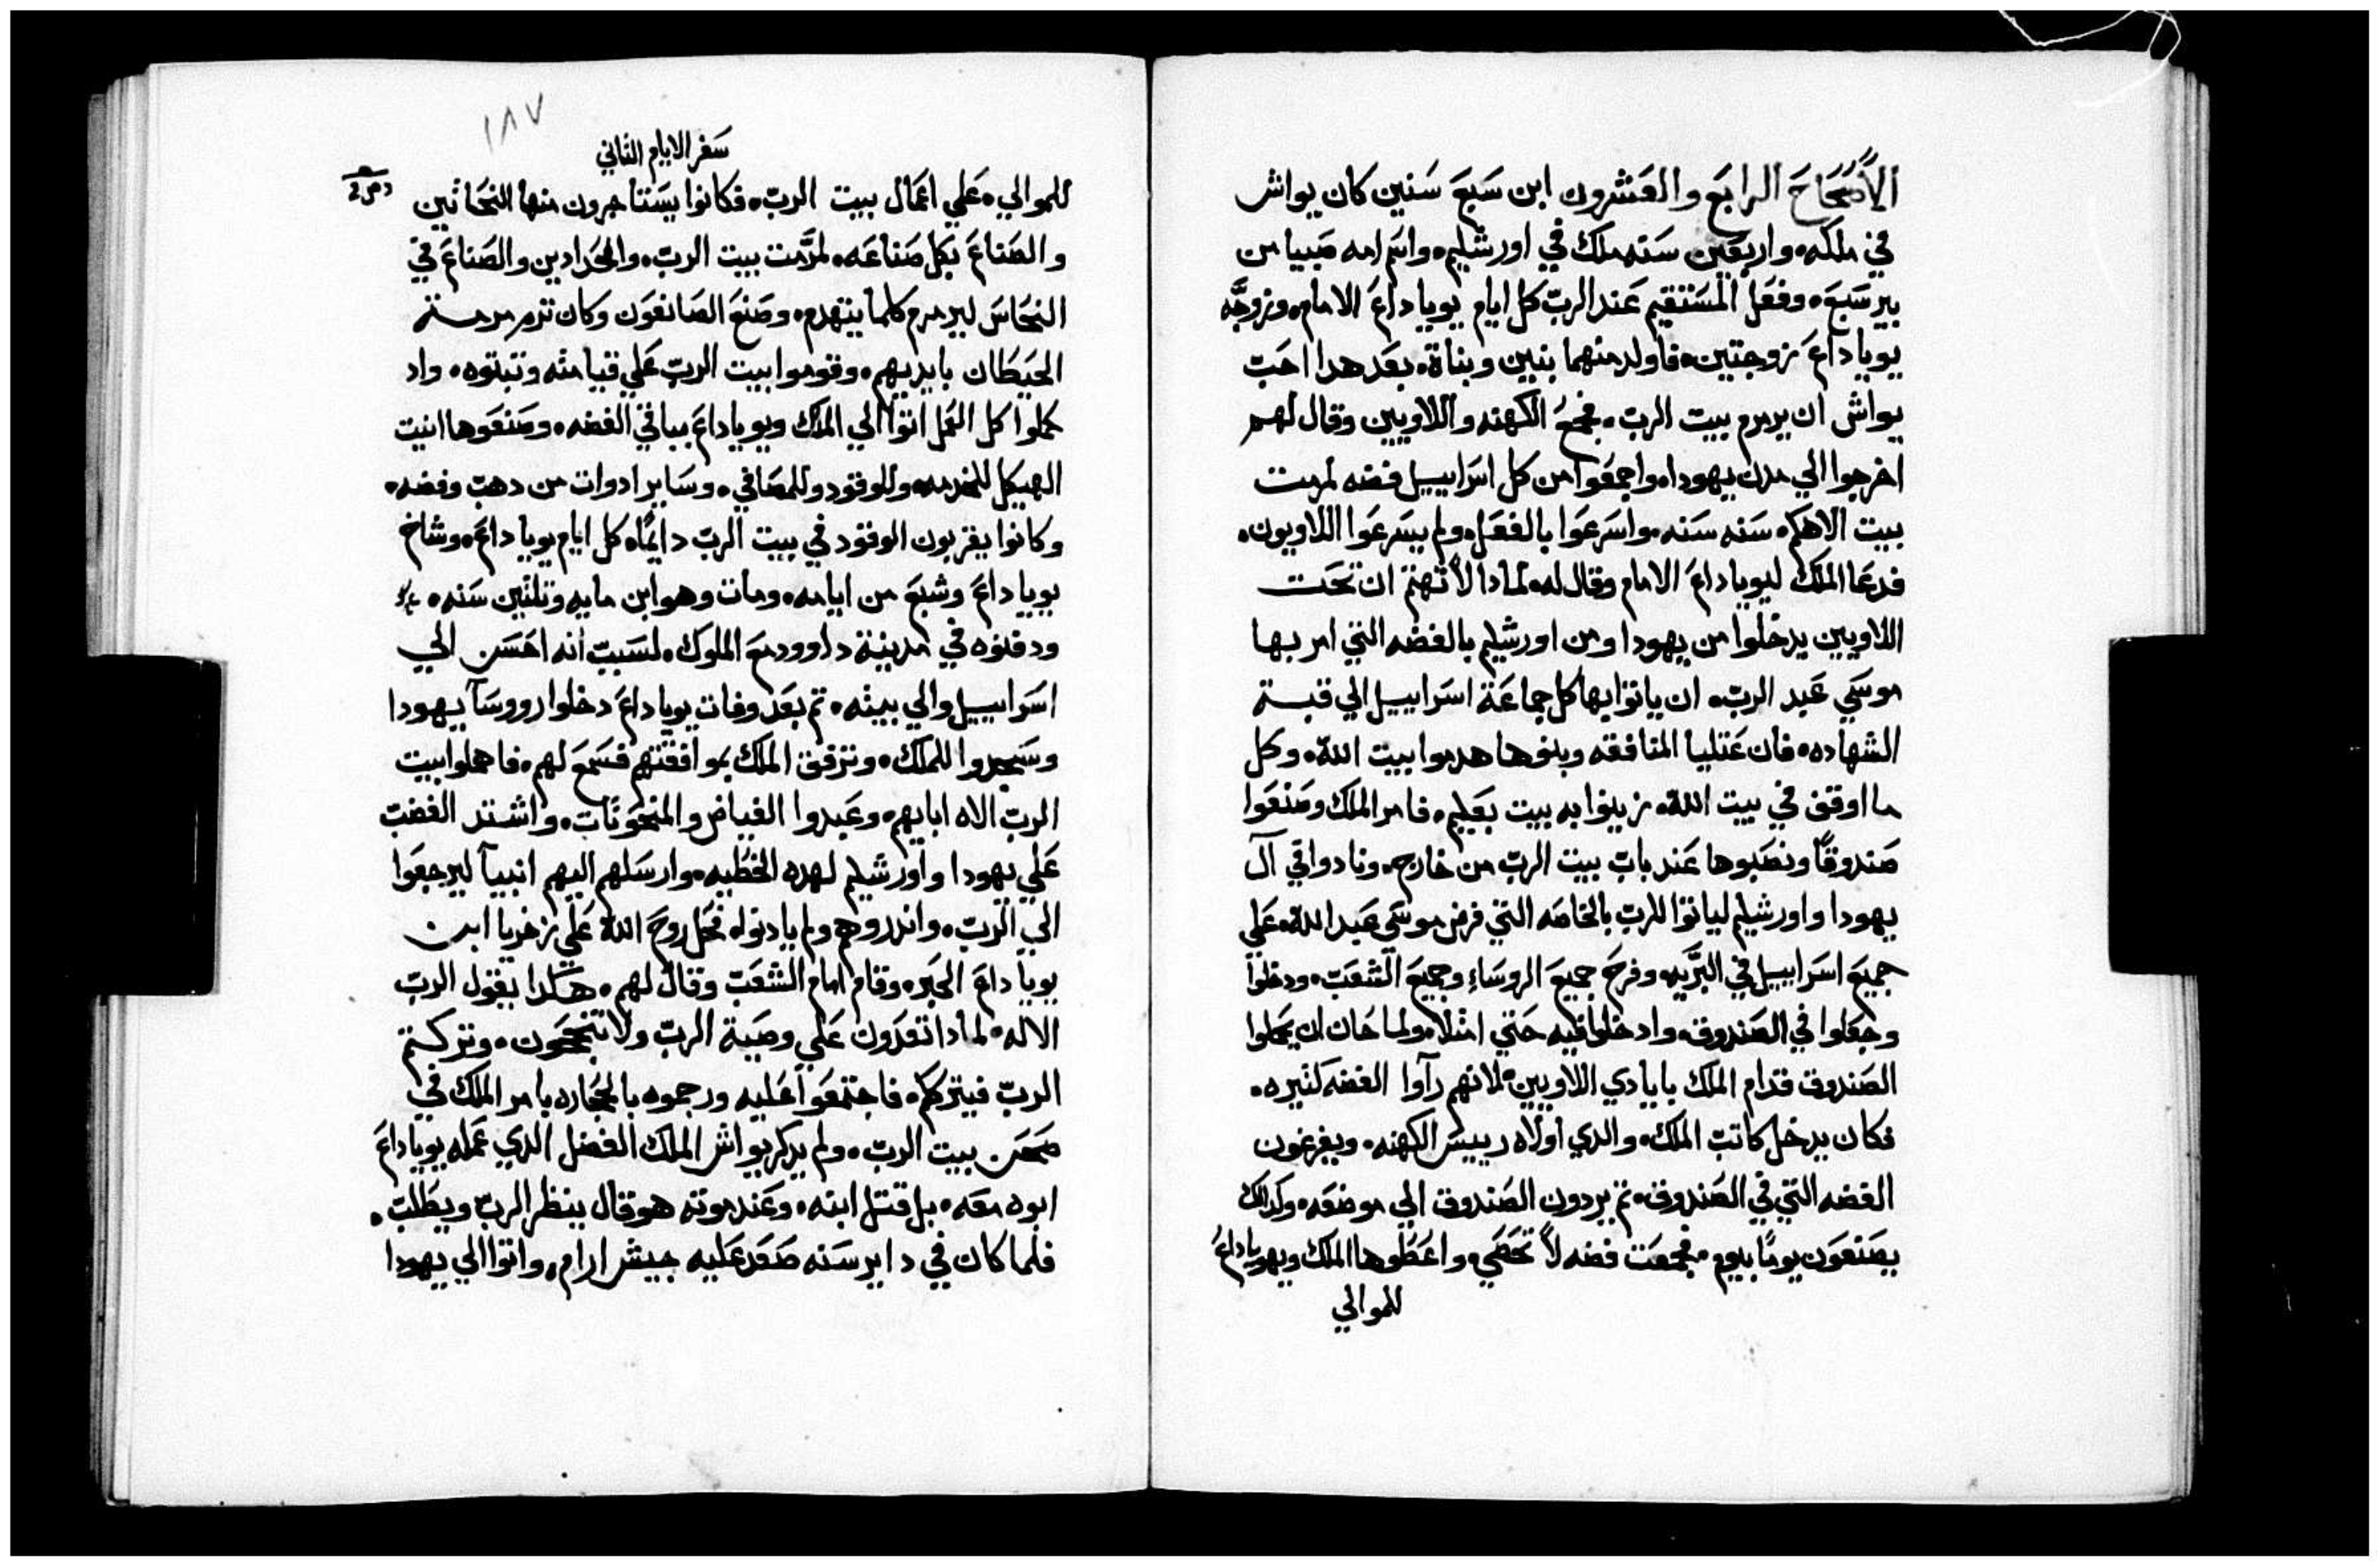 الأصحاح الرابع والعشرون ابن سبع سنين كان يواش
في ملكه، واربعين سنه ملك في اورشليم، واسم امه صبيا من
بير سبع، وفعل المستقيم عند الرب كل ايام يويا داع الامام، وزوجه
يويا داع زوجتين، فاولد منهما بنين وبناة، بعد هدا احب
يواش ان يرمرم بيت الرب، فجمع الكهنه واللاويين وقال لهم
اخرجوا الي مدن يهودا، واجمعوا من كل اسراييل فضه لمرمت
بيت الاهكم، سنه سنه، واسرعوا بالفعل، ولم يسرعوا اللاويون،
فدعا الملك ليويا داع الامام وقال له لمادا لا تهتم ان تحت
اللاويين يدخلوا من يهودا ومن اورشليم بالفضه التي امر بها
موسي عبد الرب، ان ياتوا بها كل جماعة اسراييل الي قبة
الشهاده، فان عتليا المنافقه وبنوها هدموا بيت الله، وكل
ما اوقف في بيت الله، زينوا به بيت بعليم، فامر الملك وصنعوا
صندوقاً ونصبوها عند باب بيت الرب من خارج، ونادوا في آل
يهودا واورشليم لياتوا للرب بالخاصه التي فرض موسي عبد الله، علي
جميع اسراييل في البريه، وفرح جميع الروساء وجميع الشعب، ودخلوا
وجعلوا في الصندوق، وادخلوا فيه حتي امتلا، ولما حان ان يحملوا
الصندوق قدام الملك بايادي اللاويين، لانهم رآوا الفضه كثيره،
فكان يدخل كاتب الملك، والدي أولاه رييس الكهنه، ويفرغون
الفضه التي في الصندوق، تم يردون الصندوق الي موضعه، وكدالك
يصنعون يومًا بيوم، فجمعت فضه لا تحصي، واعطوها الملك ويهويا داع
للموالي
١٨٧
سفر الايام الثاني
للموالي، علي اعمال بيت الرب، فكانوا يستاجرون منها النحاتين
والصناع بكل صناعه، لمرمت بيت الرب، والحدادين والصناع في
النحاس ليرمرم كلما ينهدم، وصنع الصانعون وكان ترم مرمة
الحيطان بايديهم، وقوموا بيت الرب علي قيامته وتبتوه، واد
كملوا كل العمل اتوا الي الملك ويويا داع بباقي الفضه، وصنعوها انيت
الهيكل للخدمه وللوقود وللمصافي، وساير ادوات من دهب وفضه،
وكانوا يقربون الوقود في بيت الرب دايمًا، كل ايام يويا داع، وشاخ
يويا داع وشبع من ايامه، ومات وهو ابن مايه وتلتين سنه،
ودفنوه في مدينة داوود مع الملوك، لسبب انه احسن الي
اسراييل والي بيته، تم بعد وفات يويا داع دخلوا رووسآ يهودا
وسجدوا للملك، وترفق الملك بموافقتهم فسمع لهم، فاهملوا بيت
الرب الاه ابايهم، وعبدوا الغياض والمنحوتات، واشتد الغضب
علي يهودا واورشليم لهده الخطيه، وارسلهم اليهم انبيآ ليرجعوا
الي الرب، واندروهم ولم يادنوا، فحل روح الله علي زخريا ابن
يويا داع الحبر، وقام امام الشعب وقال لهم، هكدا يقول الرب
الاله، لمادا تعدون علي وصية الرب ولا تنجحون، وتركتم
الرب فيتركم، فاجتمعوا عليه ورجموه بالحجاره بامر الملك في
صحن بيت الرب، ولم يدكر يواش الملك الفضل الدي عمله يويا داع
ابوه معه، بل قتل ابنه، وعند موته هو قال ينظر الرب ويطلب،
فلما كان في داير سنه صعد عليه جيش ارام، واتوا الي يهودا